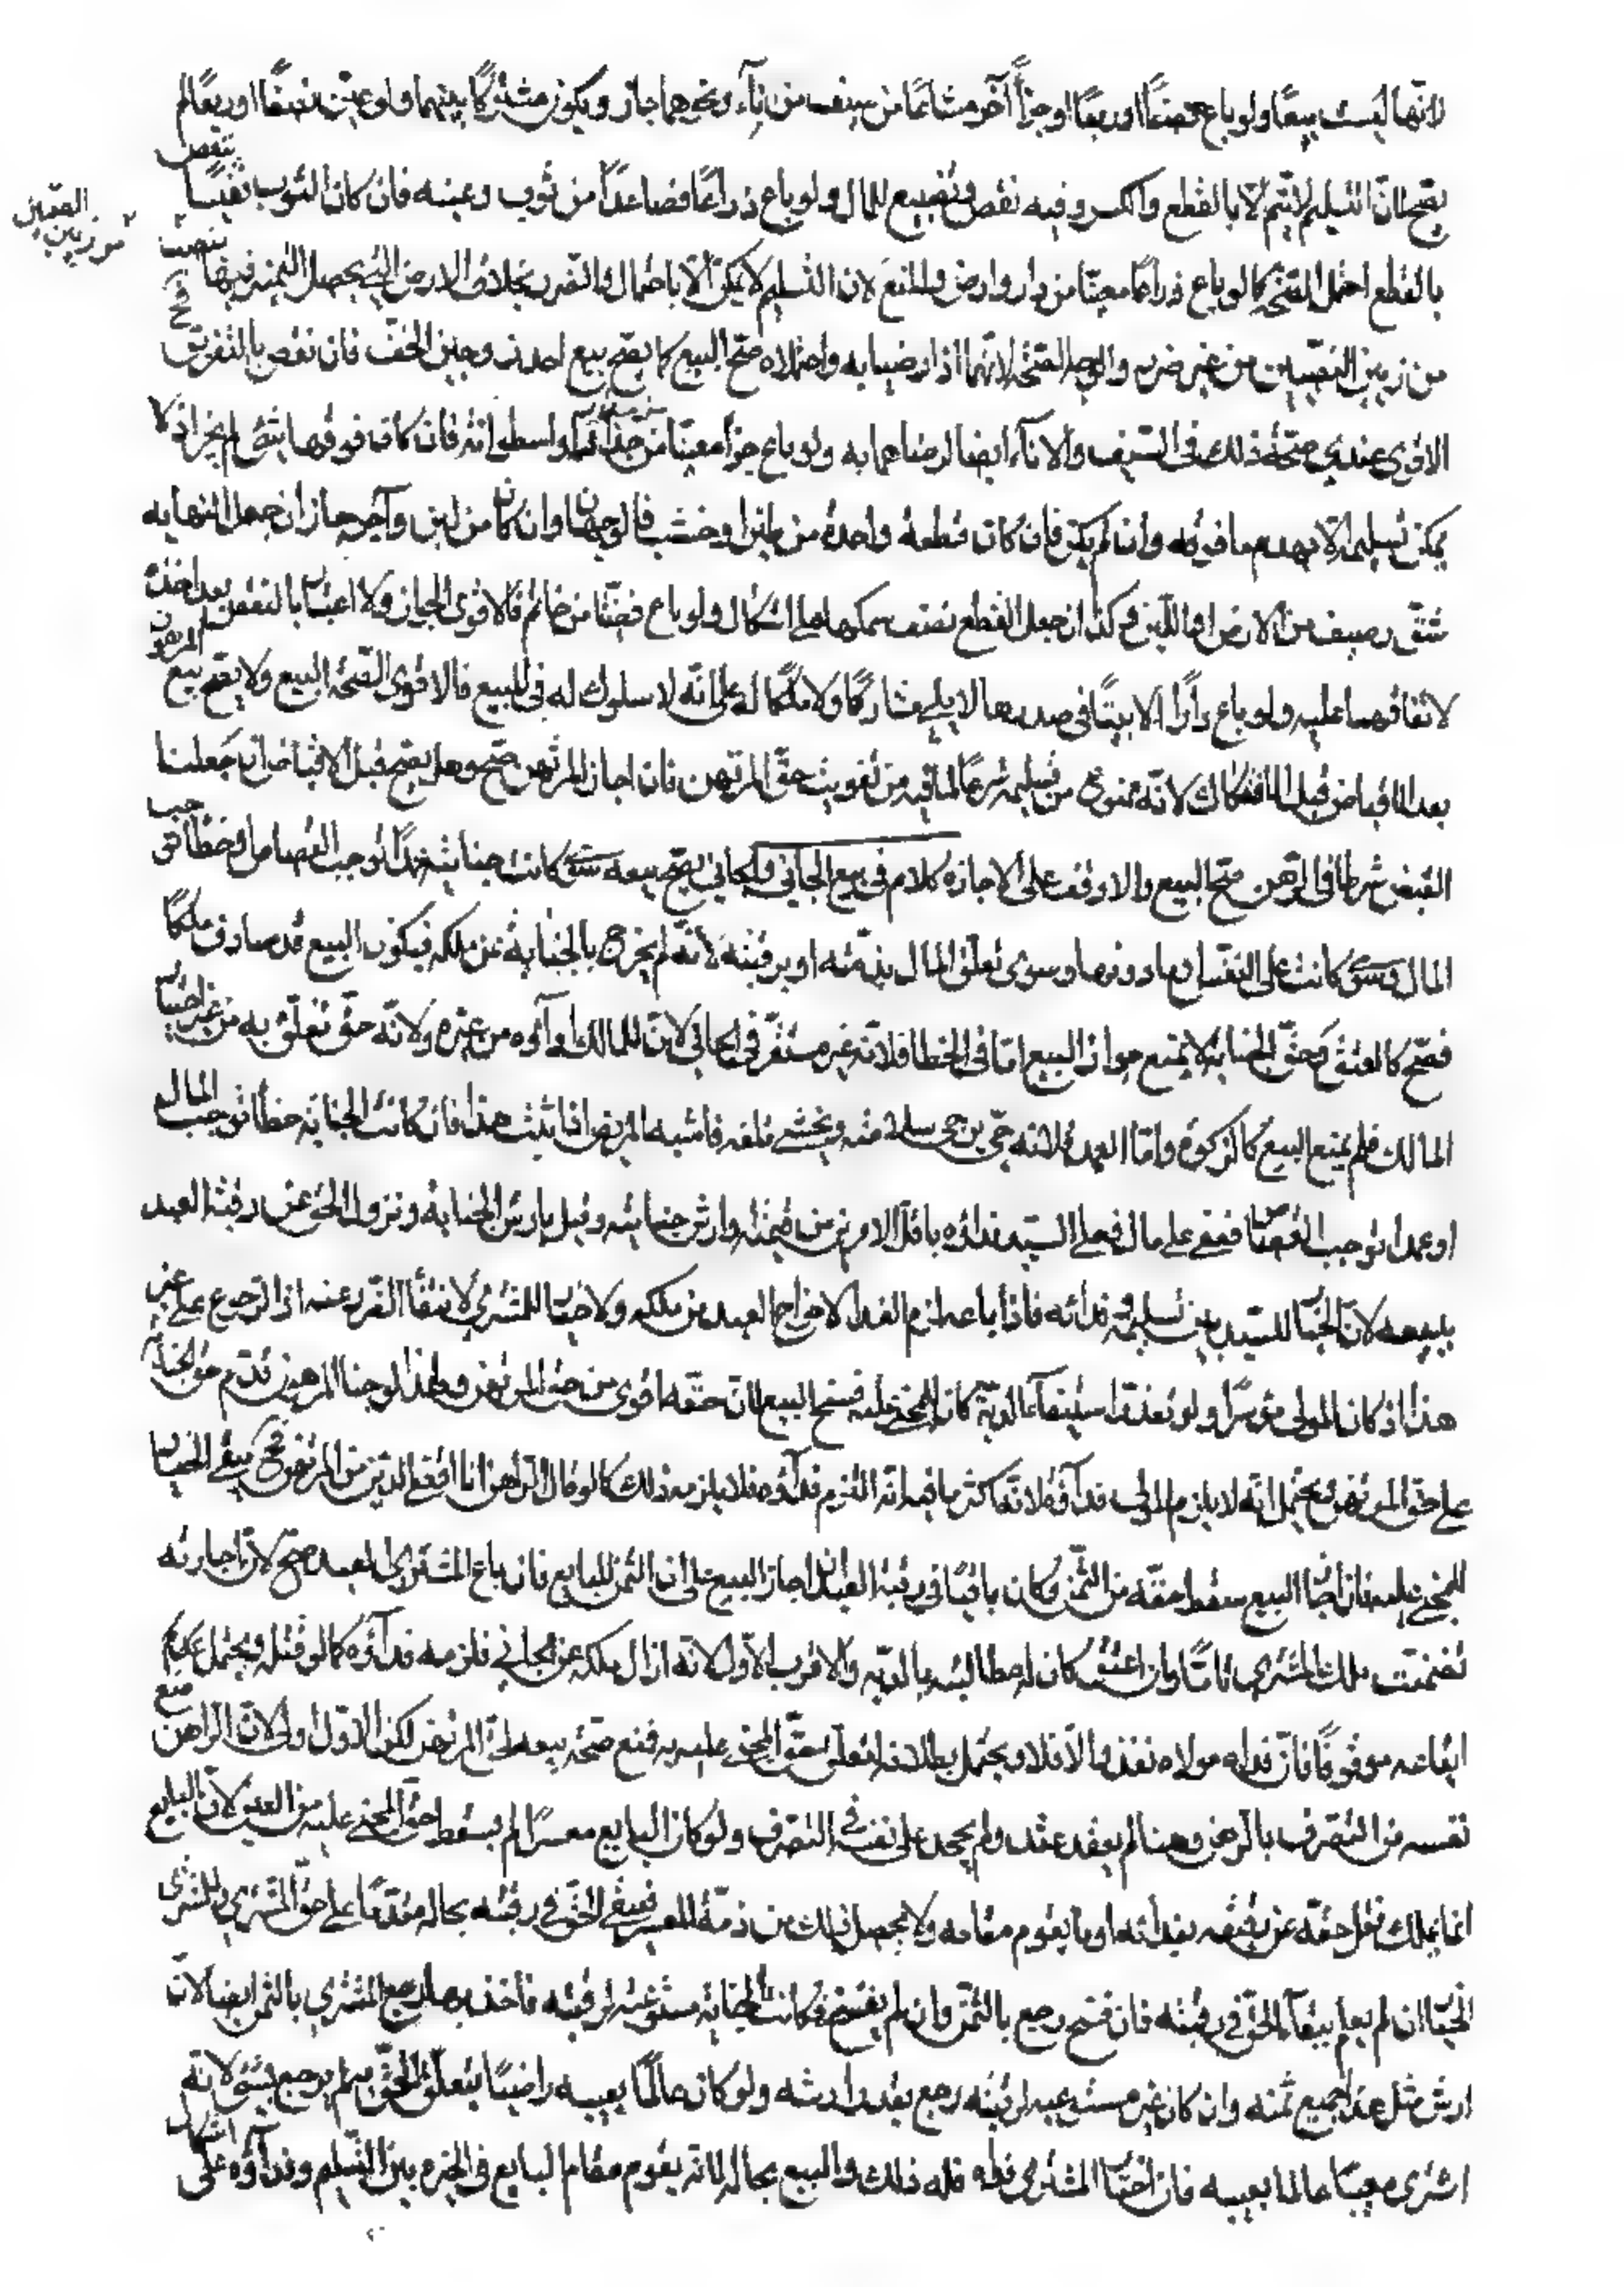 لانّها ليست بيعًا ولو باع نصفًا او ربعًا او جزءًا آخر مشاعًا من سيف من اناء ونحوهما جاز ويكون مشتركًا بينهما ولو عيّن نصفًا او ربعًا لم
يصح لانّ التسليم لا يتم الا بالقطع والكسر وفيه نقص وتضييع للمال ولو باع ذراعًا فصاعدًا من ثوب وعينه فان كان الثوب نفيسًا ينقص
بالقطع احتمل الصّحة كما لو باع ذراعًا معيّنًا من دار وارض والمنع لان التسليم لا يمكن الا باحتمال الضّرر بخلاف الارض اذ يحصل التميز فيها
من زمين النصيبين من غير ضرر والوجه الصّحة لانّهما اذا رضيا به واحتملاه صحّ البيع كما يصح بيع احد زوجين الخف فان نقص بالتفريق
الاقوى عندي صحّة ذلك في السّيف والاناء ايضا لرضاهما به ولو باع جزأ معيّنًا من جدار او اسطوانة فان كان فوقها شئ لم يجز اذ لا
يمكن تسليمه الا بهدم ما فوقه وان لم يكن فان كان قطعة واحدة من طين او خشب فالوجهان وان كان من لبن وآجر جاز ان جعل النهاية
شقّ رصيف من الآجر او اللبن وكذا ان جعل القطع نصف سمكها على اشكال ولو باع فصّا من خاتم فالاقوى الجواز ولا اعتبار بالنقص بعد اخذه
لاتفاقهما عليه ولو باع دارًا الا بيتًا في صدرها لا يلي شارعًا ولا ملكًا له على انّه لا سلوك له في المبيع فالاقوى الصّحة البيع ولا يصح بيع المرهون
بعد الاقباض قبل الافتكاك لانّه ممنوع من تسليمه شرعًا لما فيه من تفويت حقّ المرتهن فان اجاز المرتهن صحّ وهل يصح قبل الاقباض ان جعلنا
القبض شرطا في الرّهن صحّ البيع والا وقف على الاجازة كلام في بيع الجاني والجاني يصحّ بيعه سوى كانت جنايته عمدًا توجب القصاص او خطأ توجب
المال وسوى كانت على النفس او ما دونها وسوى تعلق المال بذمّته او برقبته لانّه لم يخرج بالجناية عن ملكه فيكون البيع قد صادف ملكًا
فصح كالعتق وحقّ الجناية لا يمنع جواز البيع امّا في الخطا فلانّه غير مستقر في الجاني لانّ للمالك اداؤه من غيره ولانّه حقّ تعلّق به من غير اختيار
المالك فلم يمنع البيع كالزكوة وامّا العمد فلانه حيّ يرجى سلامته ويخشى تلفه فاشبه المريض اذا ثبت هذا فان كانت الجناية خطأ توجب المال
او عمدا توجب القصاص فعفى على مال فعلى السيد فداؤه باقل الامرين من قيمته وارش جنايته وقيل بارش الجناية ونزول الحق عن رقبة العبد
ببيعه لانّ الخيار للسيد بين تسليمه وفدائه فاذا باعه لزم الفدا لاخراج العبد من ملكه ولا خيار للمشتري لانتفاء الضّرر عنه اذا لرجوع على غيره
هذا اذا كان المولى موسرًا ولو تعذر استيفاء الديّة كان للمجني عليه فسخ البيع لانّ حقّه اقوى من حقّ المرتهن ولهذا لو جنا المرهون قدّم حق الجناية
على حقّ المرتهن ويحتمل انّه لا يلزم المولى فداؤه لانّه اكثر ما فيه انّه التزم فداؤه فلا يلزمه ذلك كما لو قال الرّاهن انا اقضى الدين من المرهون فح يبقى الخيار
للمجني عليه فان اجاز البيع سقط حقّه من الثّمن وكان باقيًا في رقبة العبد ان اجاز البيع على ان الثمن للبايع فان باع المشتري العبد صحّ لانّ اجازته
تضمنت ملك المشتري تامّا وان اعتق كان له مطالبته بالديّة والاقرب الاوّل لانّه ازال ملكه عن الجاني فلزمه فداؤه كما لو قتله ويحتمل عدم
ايقاعه موقوفًا فان فداه مولاه نفذ والا فلا ويحتمل بطلانه لتعلق حقّ المجني عليه به فمنع صحّة بيعه لحق المرتهن لكن الاوّل اولى لان الراهن منع
نفسه من التصرف بالرهن وهنا لم يعقد عقد ولم يحجر على نفسه في التصرف ولو كان البايع معسرًا لم يسقط حق المجني عليه من العين لانّ البايع
انما يملك نقل حقّه عن رقبته بفدائه او ما يقوم مقامه ولا يحصل ذلك من ذمّة المعسر فيبقى الحقّ في رقبته بحاله مقدّمًا على حقّ المشتري وللمشتري
الخيار ان لم يعلم ببقاء الحق في رقبته فان فسخ رجع بالثمن وان لم يفسخ وكانت الجناية مستوعبة لرقبته فاخذ بها رجع المشتري بالثمن ايضا لانّ
ارش مثل هذا جميع ثمنه وان كان غير مستوعبه لرقبته رجع بقدر ارشه ولو كان عالمًا بعيبه راضيًا بتعلق الحقّ به لم يرجع بشئ لانه
اشترى معيبًا عالما بعيبه فان اختار المشتري فداه فله ذلك والبيع بحاله لانه يقوم مقام البايع في الخيرة بين التسليم وفداؤه على